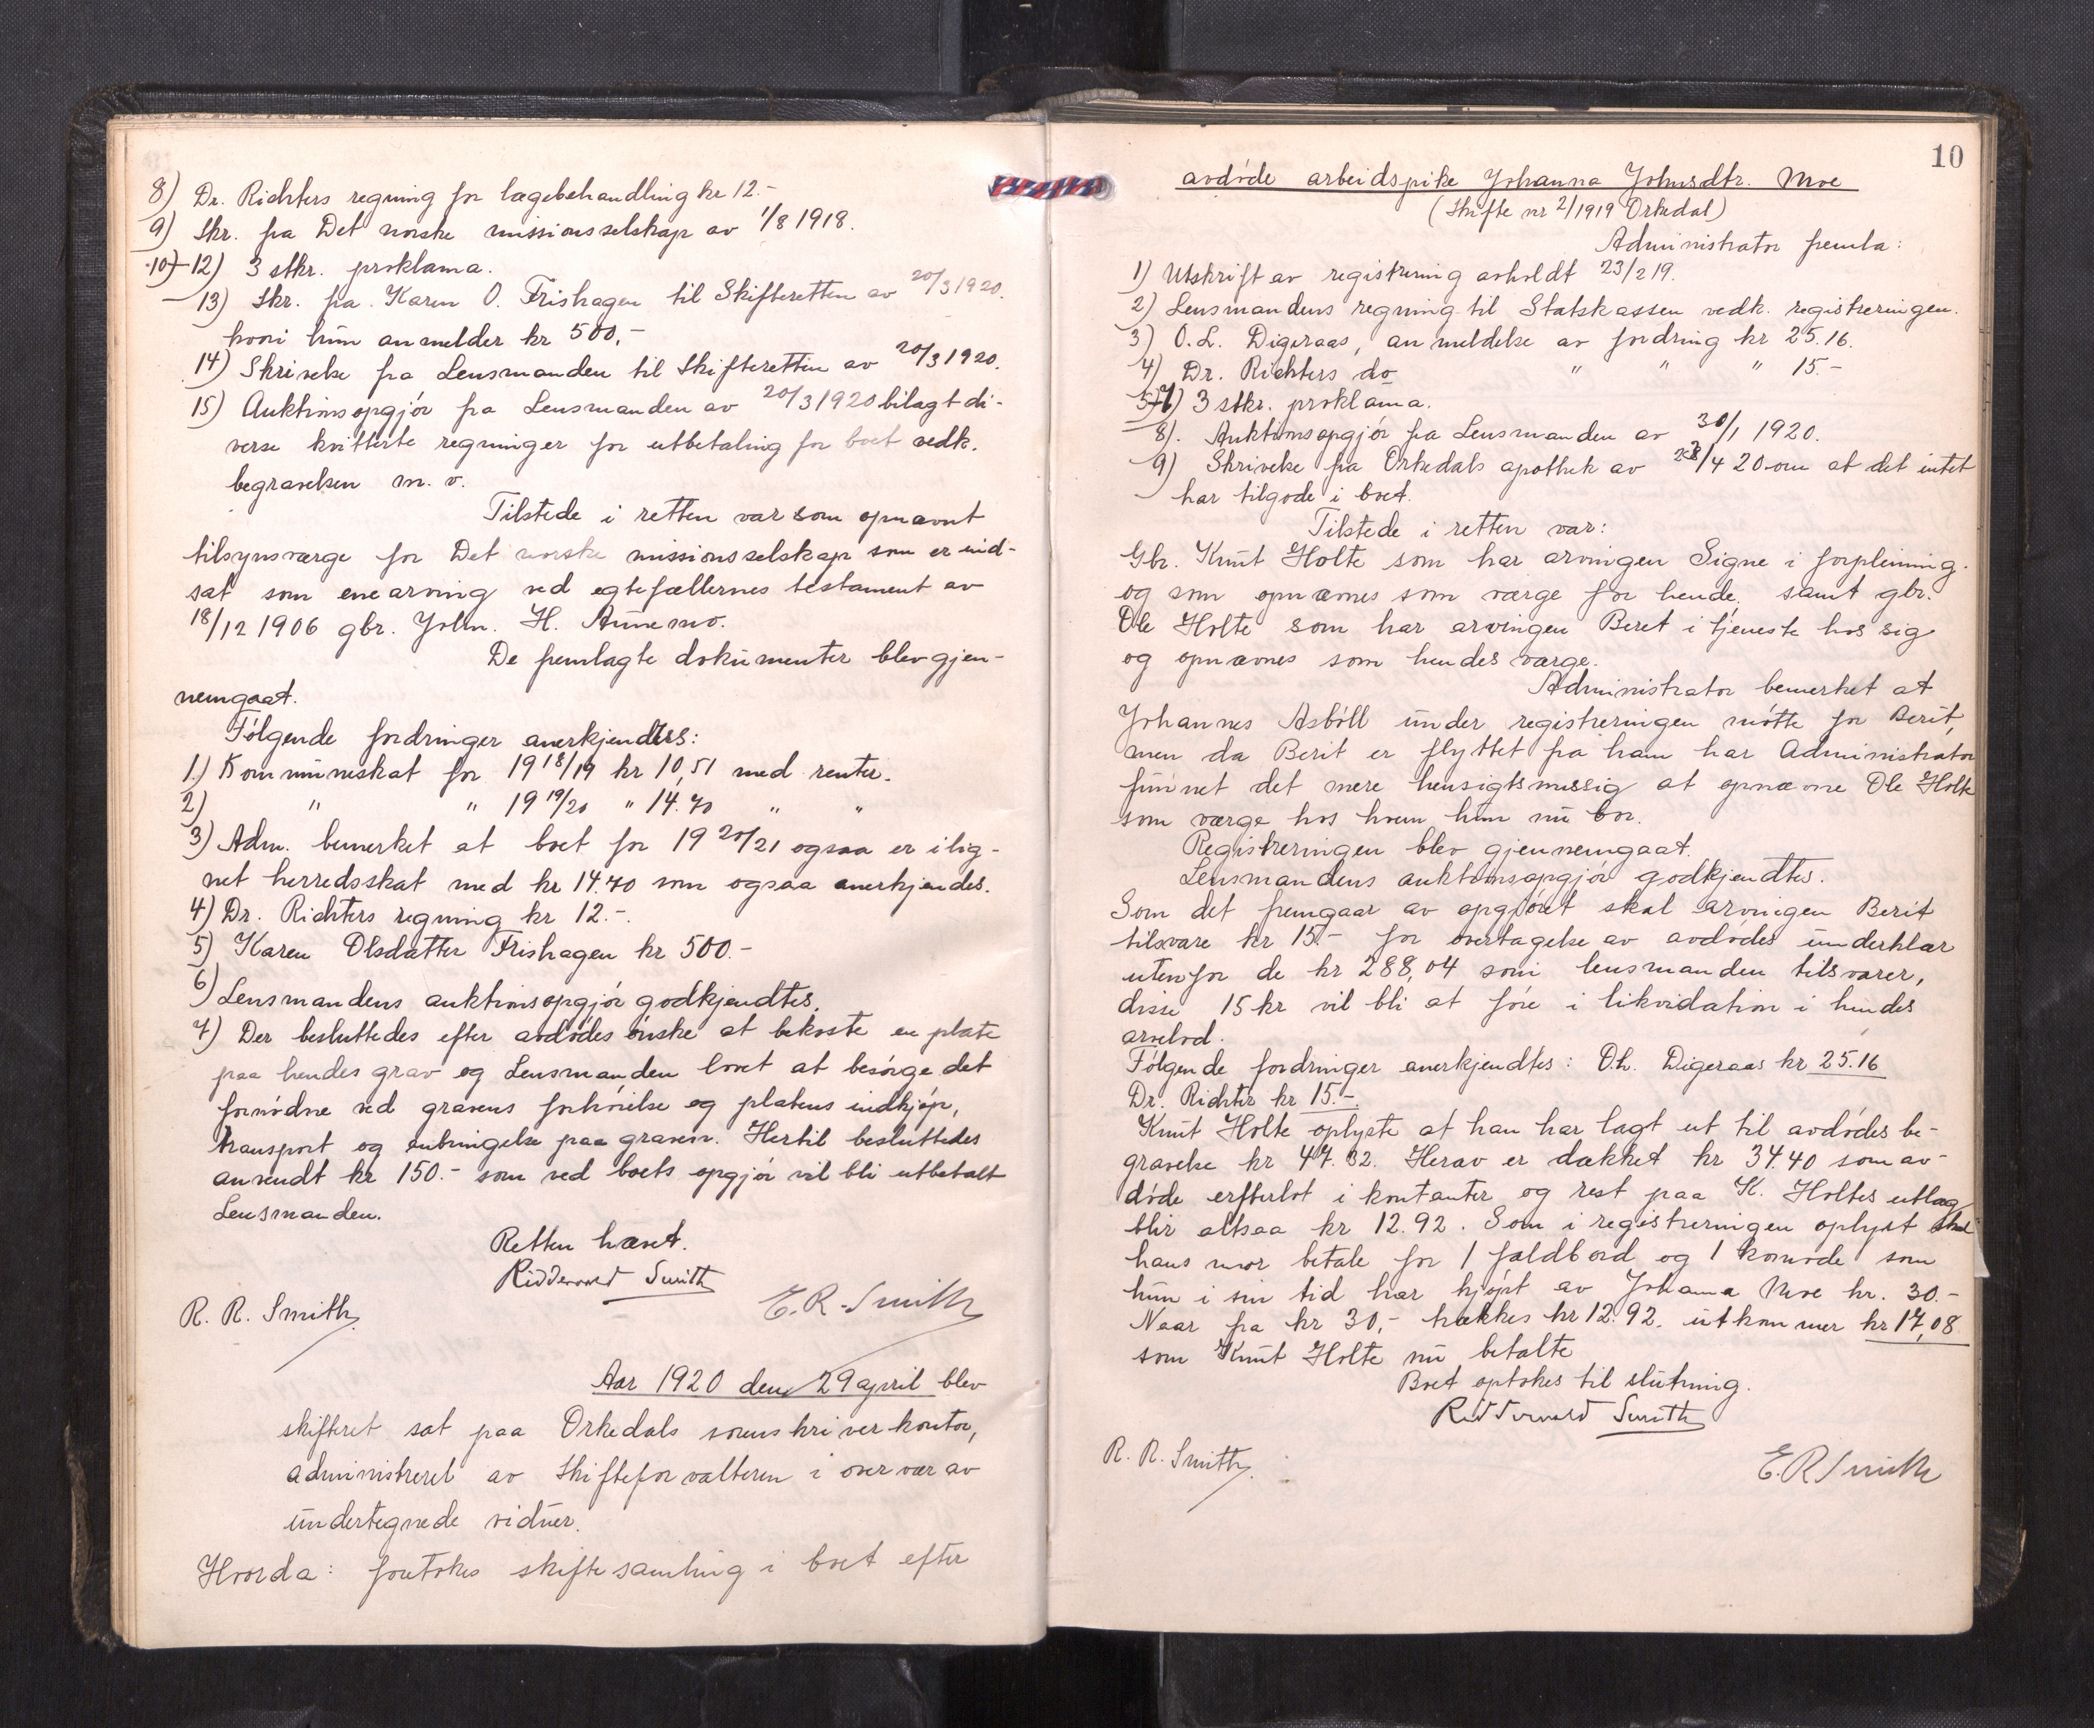 8) Dr. Richters regning for lægebehandling kr 12.-
9) Skr. fra Det norske missionsselskap av 1/8 1918.
10)-12) 3 stkr. proklama.
13) Skr. fra Karen O. Frishagen til Skifteretten av 20/3 1920.
hvori hun anmelder kr 500,-
14) Skrivelse fra Lensmanden til Skifteretten av 20/3 1920.
15) Auktionsopgjör fra Lensmanden av 20/3 1920 bilagt di-
verse kvitterte regninger for utbetaling for boet vedk.
begravelsen m. v.
Tilstede i retten var som opnævnt
tilsynsværge for Det norske missionsselskap som er ind-
sat som enearving ved egtefællernes testament av
18/12 1906 gbr. John. H. Aunemo.
De fremlagte dokumenter blev gjen-
nemgaat.
Fölgende fordringer anerkjendtes:
1.) Kommuneskat for 19 18/19 kr 10,51 med renter.
2) " " 19 19/20 " 14.70 " "
3) Adm. bemerket at boet for 19 20/21 ogsaa er ilig-
net herredsskat med kr 14.70 som ogsaa anerkjendes.
4) Dr. Richters regning kr 12.-.
5) Karen Olsdatter Frishagen kr 500.-
6) Lensmandens auktionsopgjör godkjendtes.
7) Der besluttedes efter avdödes önske at bekoste en plate
paa hendes grav og Lensmanden lovet at besörge det
fornödne ved gravens forhöielse og platens indkjöp,
transport og anbringelse paa graven. Hertil besluttedes
anvendt kr 150.- som ved boets opgjör vil bli utbetalt
Lensmanden.
Retten hævet.
Ridderwold Smith
R. R. Smith. E. R. Smith
Aar 1920 den 29 april blev
skifteret sat paa Orkedals sorenskriverkontor,
administreret av Skifteforvalteren i overvær av
undertegnede vidner.
Hvorda: foretokes skiftesamling i boet efter
10
avdöde arbeidspike Johanna Johnsdtr. Moe
(Skifte nr 2/1919 Orkedal)
Administrator fremla:
1) Utskrift av registrering avholdt 23/2 19.
2) Lensmandens regning til Statskassen vedk. registreringen.
3) O.L. Digeraas, anmeldelse av fordring kr 25.16.
4) Dr. Richters do " " " 15.-
5)-7) 3 stkr. proklama.
8). Auktionsopgjör fra Lensmanden av 30/1 1920.
9) Skrivelse fra Orkedals apothek av 28/4 20 om at det intet
har tilgode i boet.
Tilstede i retten var:
Gbr. Knut Holte som har arvingen Signe i forpleining
og som opnævnes som værge for hende, samt gbr.
Ole Holte som har arvingen Beret i tjeneste hos sig
og opnævnes som hendes værge.
Administrator bemerket at
Johannes Asböll under registreringen mötte for Berit,
men da Berit er flyttet fra ham har Administrator
funnet det mere hensigtsmessig at opnævne Ole Holte
som værge hos hvem hun nu bor.
Registreringen blev gjennemgaat.
Lensmandens auktionsopgjör godkjendtes.
Som det fremgaar av opgjöret skal arvingen Berit
tilsvare kr 15.- for overtagelse av avdödes underklær
utenfor de kr 288,04 som lensmanden tilsvarer,
disse 15 kr vil bli at före i likvidation i hendes
arvelod.
Fölgende fordringer anerkjendtes: O.L. Digeraas kr 25.16
Dr. Richter kr 15.-.
Knut Holte oplyste at han har lagt ut til avdödes be-
gravelse kr 47.32. Herav er dækket kr 34.40 som av-
döde erfterlot i kontanter og rest paa K. Holtes utlæg
blir altsaa kr 12.92. Som i registreringen oplyst skal
hans mor betale for 1 faldbord og 1 komode som
hun i sin tid har kjöpt av Johanna Moe kr. 30.-
Naar fra kr 30,- trækkes kr 12.92. utkommer kr 17,08
som Knut Holte nu betalte
Boet optokes til slutning.
Ridderwold Smith
R. R. Smith. E. R Smith